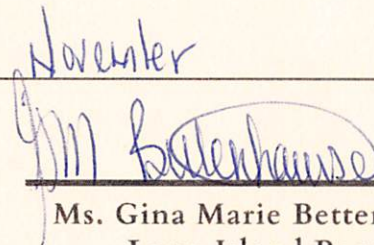 November
GM Bettenhause
Ms. Gina Marie Better